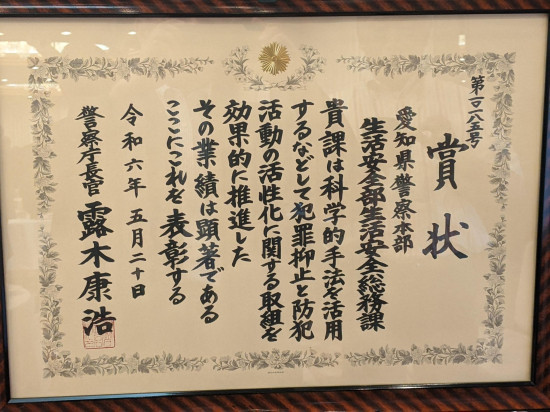 第一〇一八五号
賞状
愛知県警察本部
生活安全部生活安全総務課
貴課は科学的手法を活用
するなどして犯罪抑止と防犯
活動の活性化に関する取組を
効果的に推進した
その業績は顕著である
ここにこれを表彰する
令和六年五月二十日
警察庁長官 露木康浩